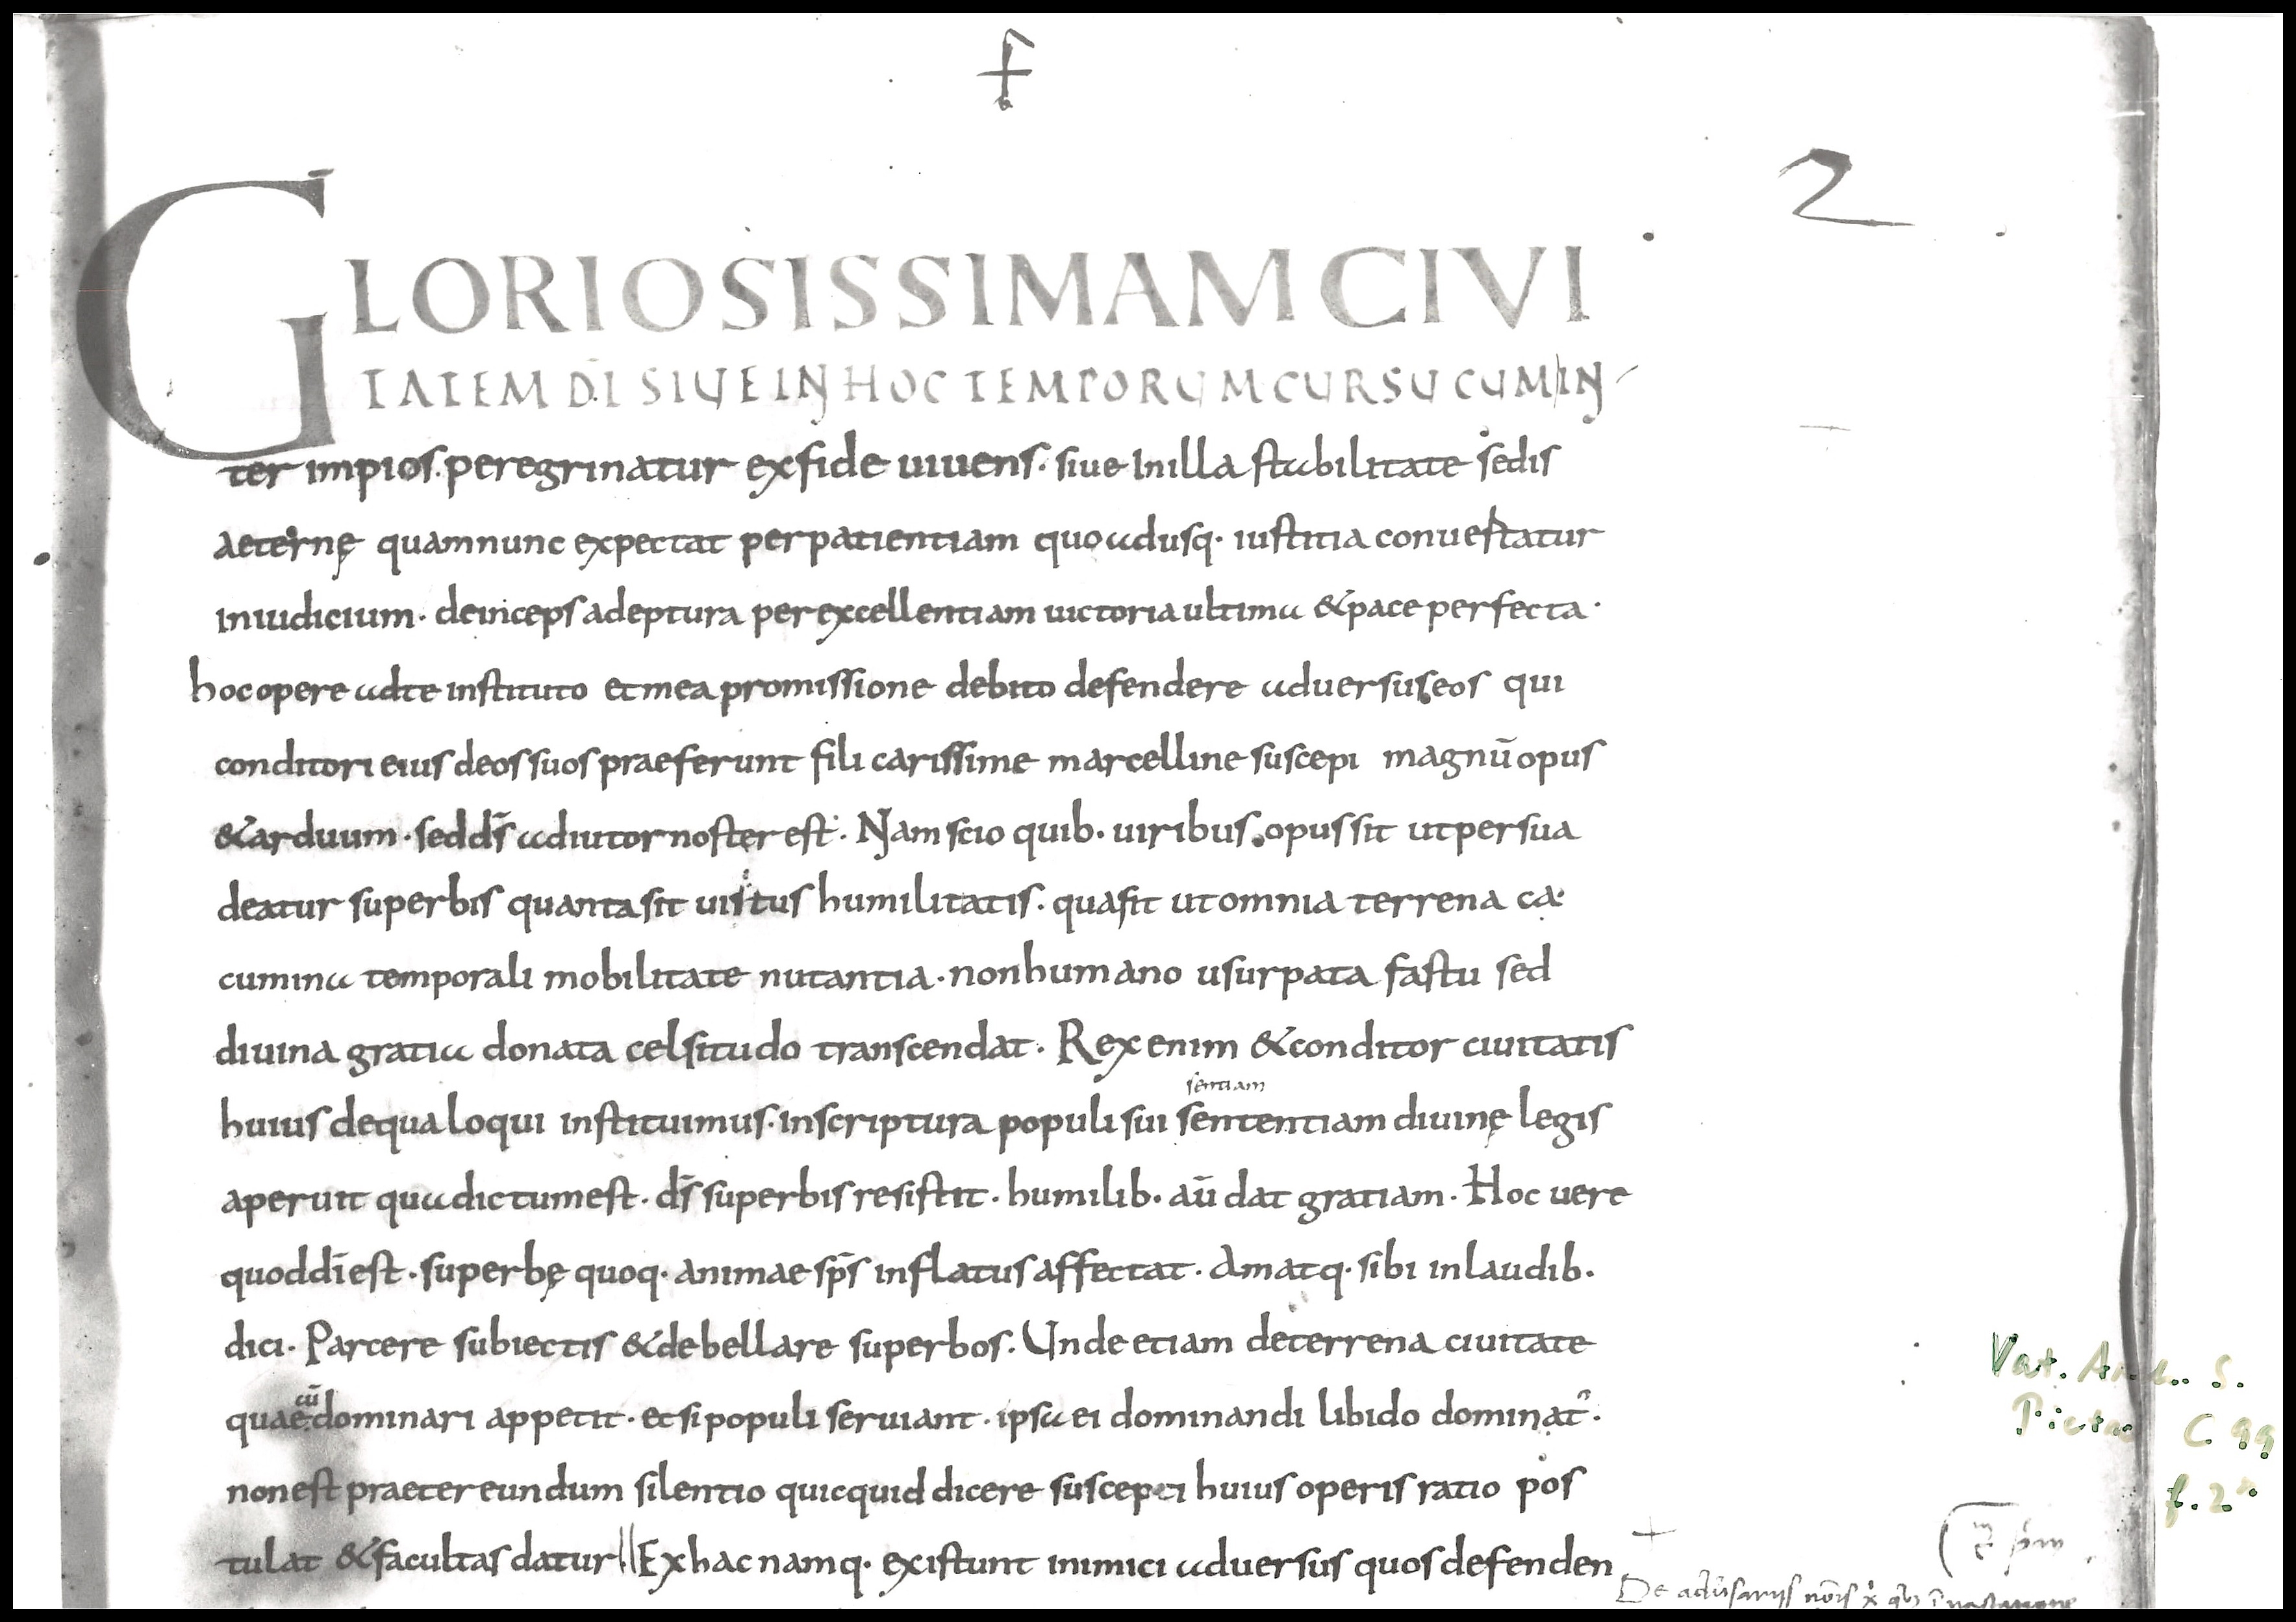 2
GLORIOSISSIMAM CIVI
TATEM DI SIUE IN HOC TEMPORUM CURSU CUM IN
ter impios. peregrinatur ex fide uiuens. siue in illa stabilitate sedis
aeternę quam nunc expectat per patientiam quo adusq. iustitia conuertatur
in iudicium. deinceps adeptura per excellentiam uictoria ultima & pace perfecta.
hoc opere ad te instituto et mea promissione debito defendere aduersus eos qui
conditori eius deos suos praeferunt fili carissime marcelline suscepi magnū opus
& arduum. sed ds̄ adiutor noster est. Nam scio quib. uiribus opus sit ut persua
deatur superbis quanta sit uirtus humilitatis. qua fit ut omnia terrena ca
cumina temporali mobilitate nutantia. non humano usurpata fastu sed
diuina gratia donata celsitudo transcendat. Rex enim & conditor ciuitatis
sentiam
huius de qua loqui instituimus. in scriptura populi sui sententiam diuinę legis
aperuit qua dictum est. ds̄ superbis resistit. humilib. aū dat gratiam. Hoc uere
quod dī est. superbę quoq. animae sps̄ inflatus affectat. Amatq. sibi in laudib.
dici. Parcere subiectis & debellare superbos. Unde etiam de terrena ciuitate
cū
quae dominari appetit. et si populi seruiant. ipsa ei dominandi libido dominat᷒.
non est praetereundum silentio quicquid dicere suscepti huius operis ratio pos
tulat & facultas datur || Ex hac namq. existunt inimici aduersus quos defenden
Vat. Arch. S.
Pietro C 99
f. 2r